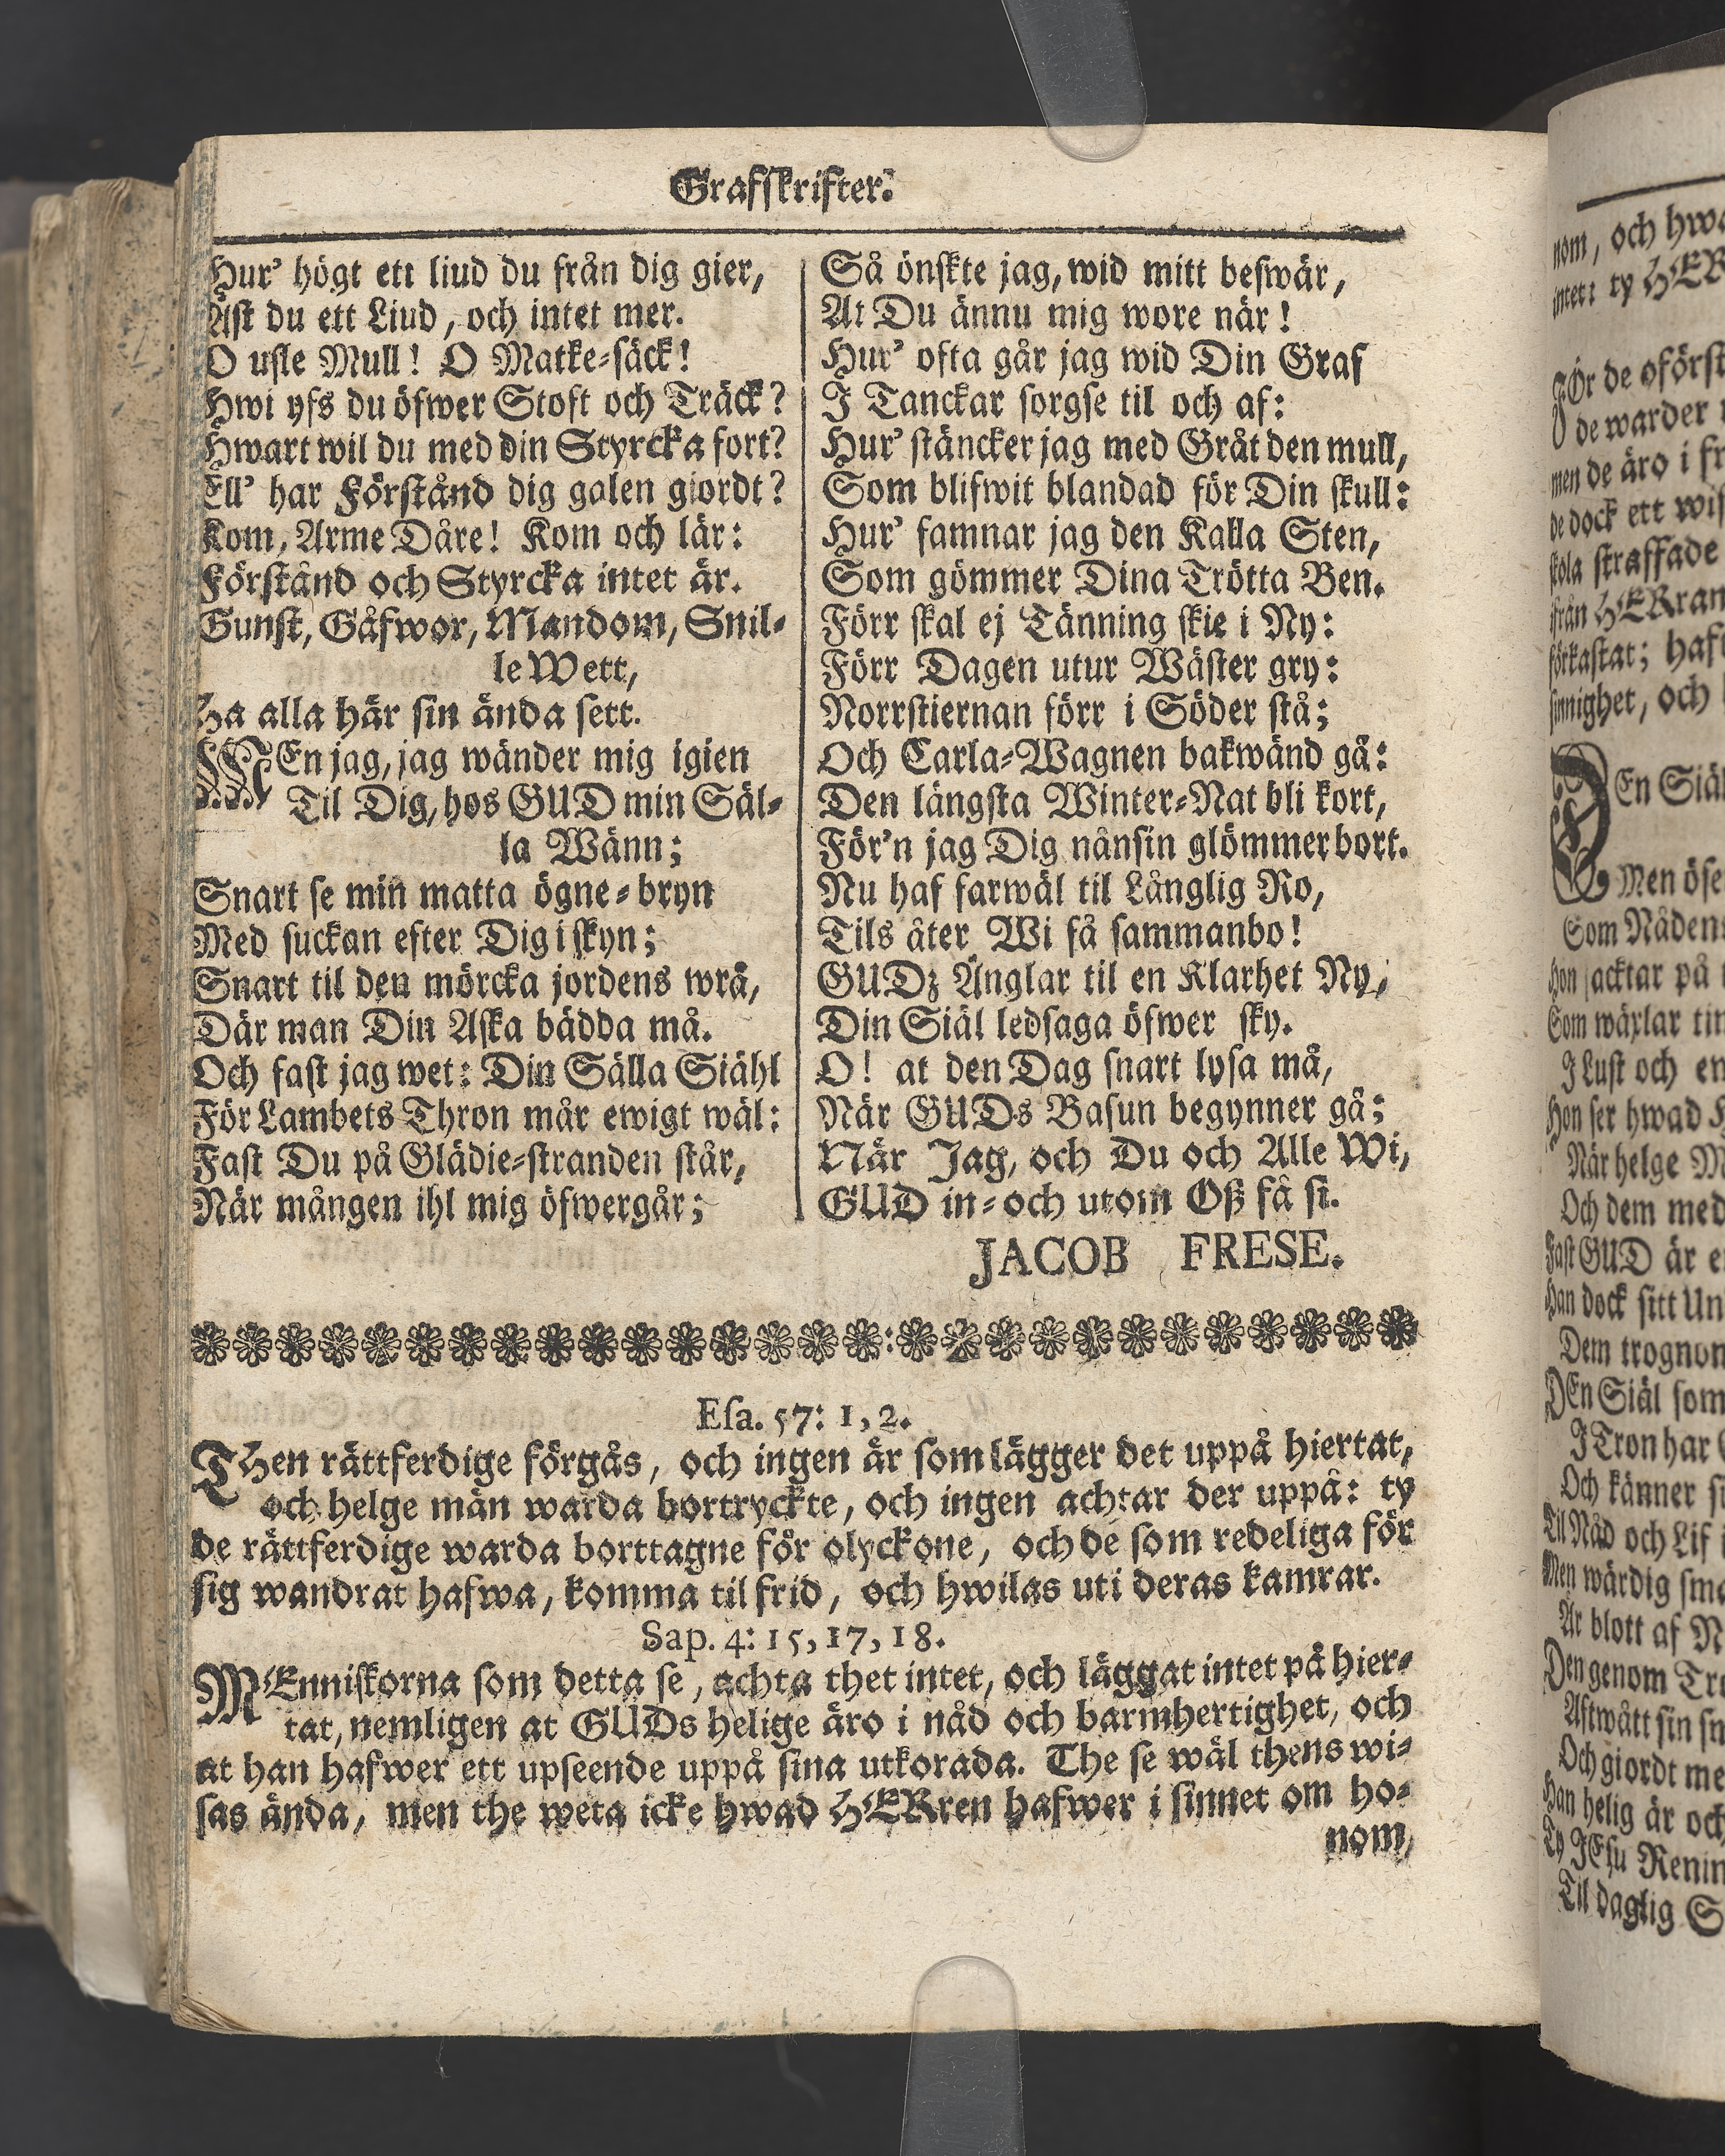 Grafskrifter.
Hur' högt ett liud du från dig gier,
Äst du ett Liud, och intet mer.
O usle Mull! O Matke-säck!
Hwi yfs du öfwer Stoft och Träck?
Hwart wil du med din Styrcka fort?
Ell' har Förstånd dig galen giordt?
Kom, Arme Dåre! Kom och lär:
Förstånd och Styrcka intet är.
Gunst, Gåfwor, Mandom, Snil-
le Wett,
Ha alla här sin ända sett.
MEn jag, jag wänder mig igien
Til Dig, hos GUD min Säl-
la Wänn;
Snart se min matta ögne-bryn
Med suckan efter Dig i skyn;
Snart til den mörcka jordens wrå,
Där man Din Aska bädda må.
Och fast jag wet: Din Sälla Siähl
För Lambets Thron mår ewigt wäl:
Fast Du på Glädie-stranden står,
När mången ihl mig öfwergår;
Så önskte jag, wid mitt beswär,
At Du ännu mig wore när!
Hur' ofta går jag wid Din Graf
I Tanckar sorgse til och af:
Hur' stäncker jag med Gråt den mull,
Som blifwit blandad för Din skull:
Hur' famnar jag den Kalla Sten,
Som gömmer Dina Trötta Ben.
Förr skal ej Tänning skie i Ny:
Förr Dagen utur Wäster gry:
Norrstiernan förr i Söder stå;
Och Carla-Wagnen bakwänd gå:
Den längsta Winter-Nat bli kort,
För'n jag Dig nånsin glömmer bort.
Nu haf farwäl til Långlig Ro,
Tils åter Wi få sammanbo!
GUDz Änglar til en Klarhet Ny,
Din Siäl ledsaga öfwer sky.
O! at den Dag snart lysa må,
När GUDs Basun begynner gå;
När Jag, och Du och Alle Wi,
GUD in-och utom Oß få si.
JACOB FRESE.
Esa. 57: 1, 2.
THen rättferdige förgås, och ingen är som lägger det uppå hiertat,
och helge män warda bortryckte, och ingen achtar der uppå: ty
de rättferdige warda borttagne för olyckone, och de som redeliga för
sig wandrat hafwa, komma til frid, och hwilas uti deras kamrar.
Sap. 4: 15, 17, 18.
MEnniskorna som detta se, achta thet intet, och läggat intet på hier-
tat, nemligen at GUDs helige äro i nåd och barmhertighet, och
at han hafwer ett upseende uppå sina utkorada. The se wäl thens wi-
sas ända, men the weta icke hwad HERren hafwer i sinnet om ho-
nom,
nom, och
ty
de warder
men de äro i
de dock ett
skola straffade
ifrån HERran
förkastat;
och
DEn Siäl
Men
Som Nådens
Hon jacktar på
Som wäxlar
I Lust och
Hon ser hwad
När helge
Och dem med
Fast GUD är
Han dock sitt
Dem
DEn Siäl som
I Tron har
Och känner
Til Nåd och Lif
Men wärdig
Är blott af
Den genom
Aftwått sin
Och giordt
Han helig är
Ty JEsu
Til daglig